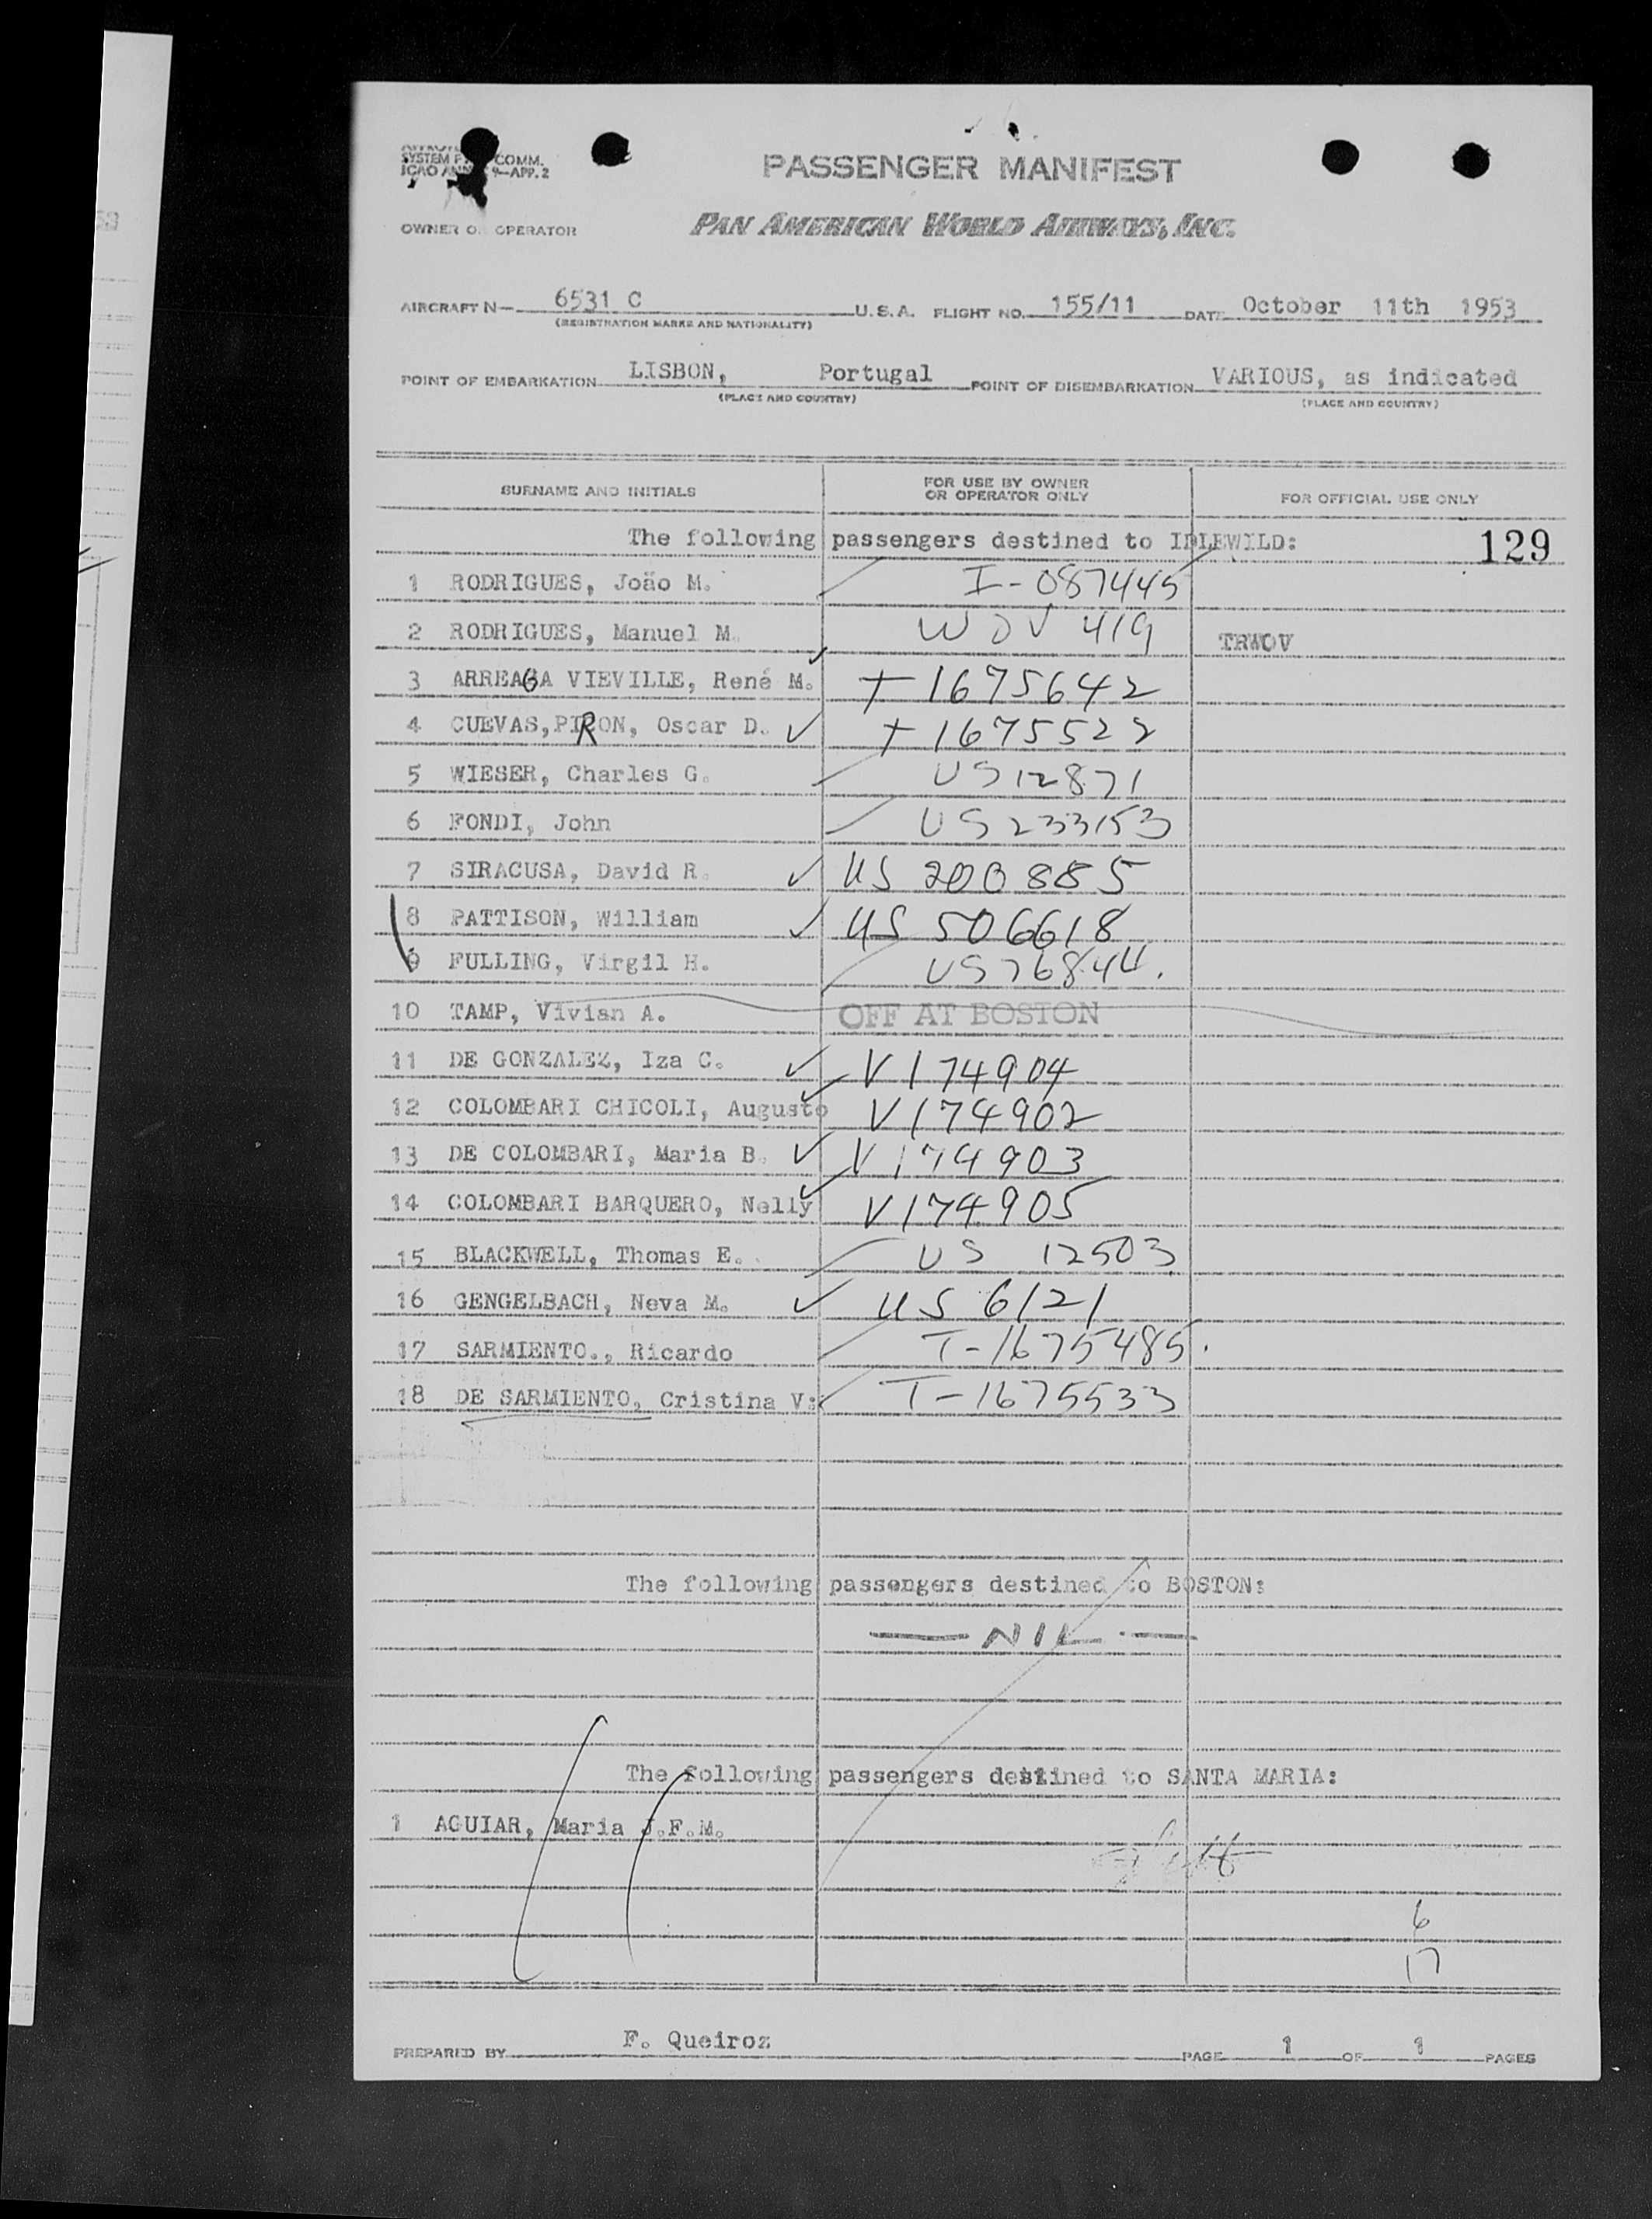 SYSTEM COMM.
ICAO 9—APP. 2
PASSENGER MANIFEST
OWNER O. OPERATOR
PAN AMERICAN WORLD AIRWAYS, INC.
AIRCRAFT N— 6531 C U.S.A. FLIGHT NO. 155/11 DATE October 11th 1953
(REGISTRATION MARKS AND NATIONALITY)
POINT OF EMBARKATION LISBON, Portugal POINT OF DISEMBARKATION VARIOUS, as indicated
(PLACE AND COUNTRY) (PLACE AND COUNTRY)
SURNAME AND INITIALS FOR USE BY OWNER OR OPERATOR ONLY FOR OFFICIAL USE ONLY
The following passengers destined to IDLEWILD: 129
1 RODRIGUES, João M. I-087445
2 RODRIGUES, Manuel M. WDV 419 TRWOV
3 ARREAGA VIEVILLE, René M. T 1675642
4 CUEVAS,PIRON, Oscar D. T 1675522
5 WIESER, Charles G. US 12871
6 FONDI, John US 233153
7 SIRACUSA, David R. US 200885
8 PATTISON, William US 506618
9 FULLING, Virgil H. US 76844.
10 TAMP, Vivian A. OFF AT BOSTON
11 DE GONZALEZ, Iza C. V 174904
12 COLOMBARI CHICOLI, Augusto V174902
13 DE COLOMBARI, Maria B. V174903
14 COLOMBARI BARQUERO, Nelly V174905
15 BLACKWELL, Thomas E. US 12503
16 GENGELBACH, Neva M. US 6121
17 SARMIENTO., Ricardo T-1675485.
18 DE SARMIENTO, Cristina V: T-1675533
The following passengers destined to BOSTON:
— NIL —
The following passengers destined to SANTA MARIA:
1 AGUIAR, Maria J.F.M.
6
17
PREPARED BY F. Queiroz PAGE 1 OF 1 PAGES